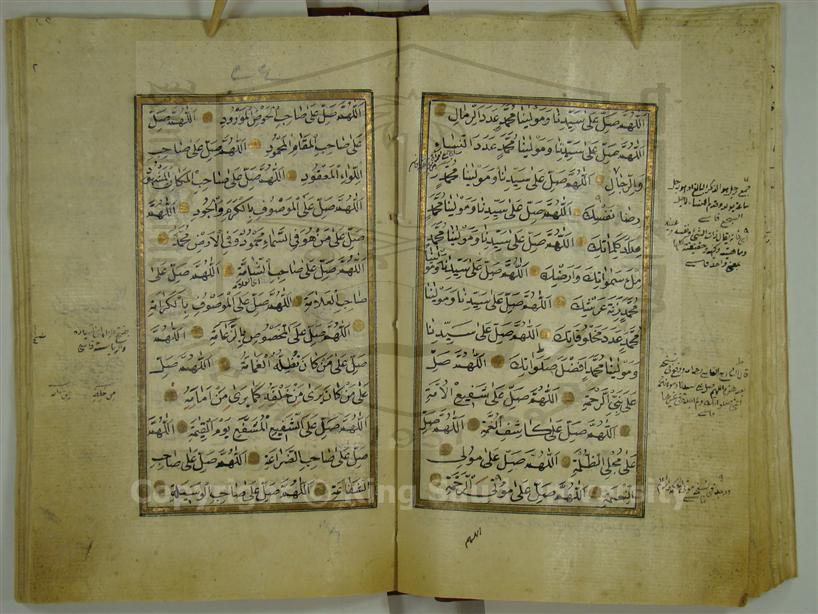 اللهم صل على سيدنا ومولينا محمد عدد الرمال
اللهم صل على سيدنا ومولينا محمد عدد النساء
والرجال اللهم صل على سيدنا ومولينا محمد
رضا نفسك اللهم صل على سيدنا ومولينا محمد
مداد كلماتك اللهم صل على سيدنا ومولينا محمد
ملء سمواتك وارضك اللهم صل على سيدنا ومولينا
محمد زنة عرشك اللهم صل على سيدنا ومولينا
محمد عدد مخلوقاتك اللهم صل على سيدنا
ومولينا محمد افضل صلواتك اللهم صل
على نبي الرحمة اللهم صل على شفيع الامة
اللهم صل على كاشف الغمة اللهم صل
على مجلي الظلمة اللهم صل على مولي
النعمة اللهم صل على موتي الرحمة
اللهم
اللهم صل على صاحب الحوض المورود اللهم صل
على صاحب المقام المحمود اللهم صل على صاحب
اللواء المعقود اللهم صل على صاحب المكان المشهود
اللهم صل على الموصوف بالكرم والجود اللهم
صل على من هو في السماء محمود وفي الارض محمد
اللهم صل على صاحب الشامة اللهم صل على
صاحب العلامة اللهم صل على الموصوف بالكرامة
اللهم صل على المخصوص بالزعامة اللهم
صل على من كان تظله الغمامة اللهم صل
على من كان يرى من خلفه كما يرى من امامه
اللهم صل على الشفيع المشفع يوم القيمة اللهم
صل على صاحب الضراعة اللهم صل على صاحب
الشفاعة اللهم صل على صاحب الوسيلة
Copyright © King Saud University